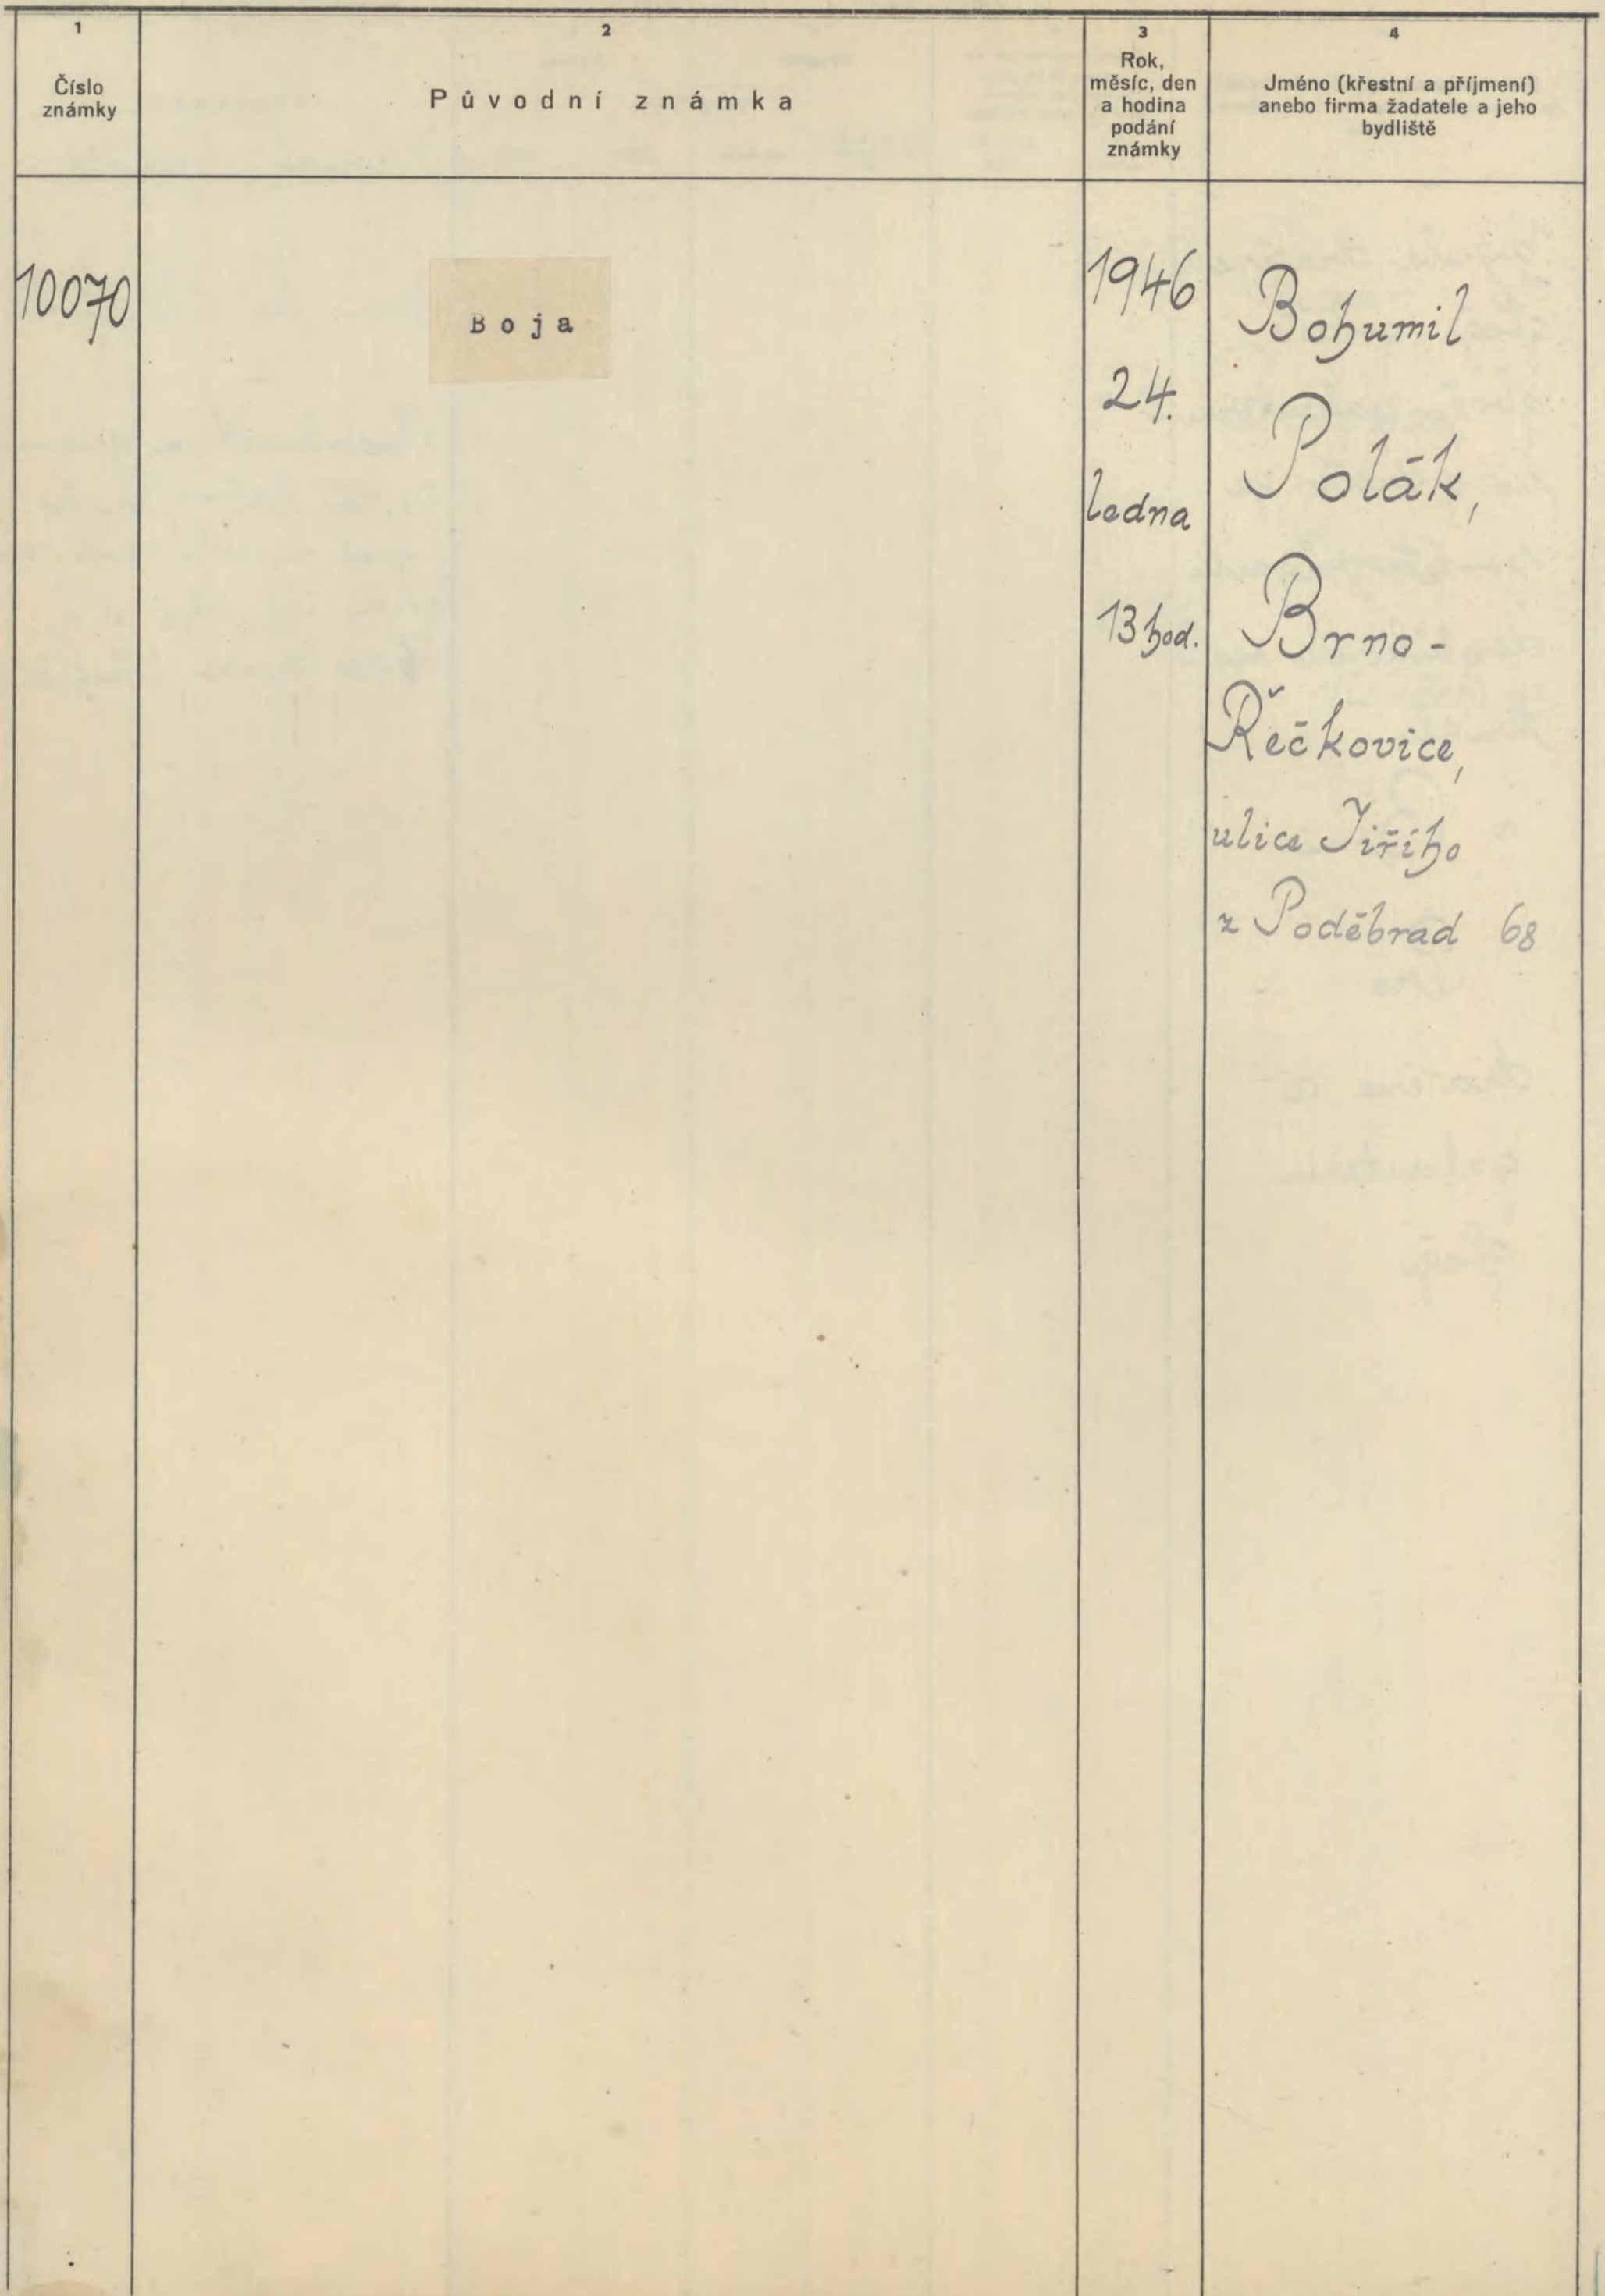 1
Číslo
známky
2
Původní známka
3
Rok,
měsíc, den
a hodina
podání
známky
4
Jméno (křestní a příjmení)
anebo firma žadatele a jeho
bydliště
10070
Boja
1946
24.
ledna
13 hod.
Bohumil
Polák,
Brno-
Řečkovice,
ulice Jiřího
z Poděbrad 68